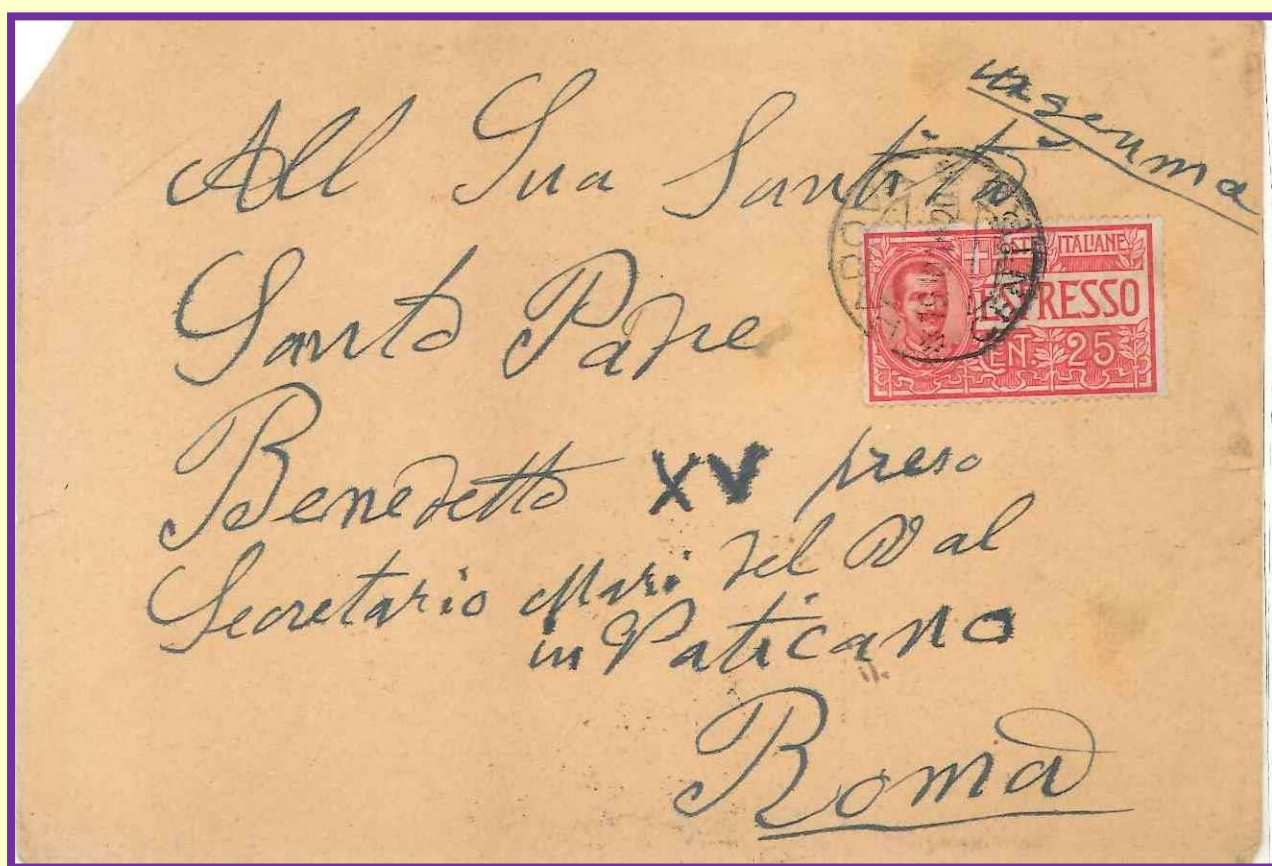 All Sua Santita
Santo Padre
Benedetto XV preso
Secretario Meri del Val
in Vaticano
Roma
POSTE ITALIANE
ESPRESSO
CENT. 25